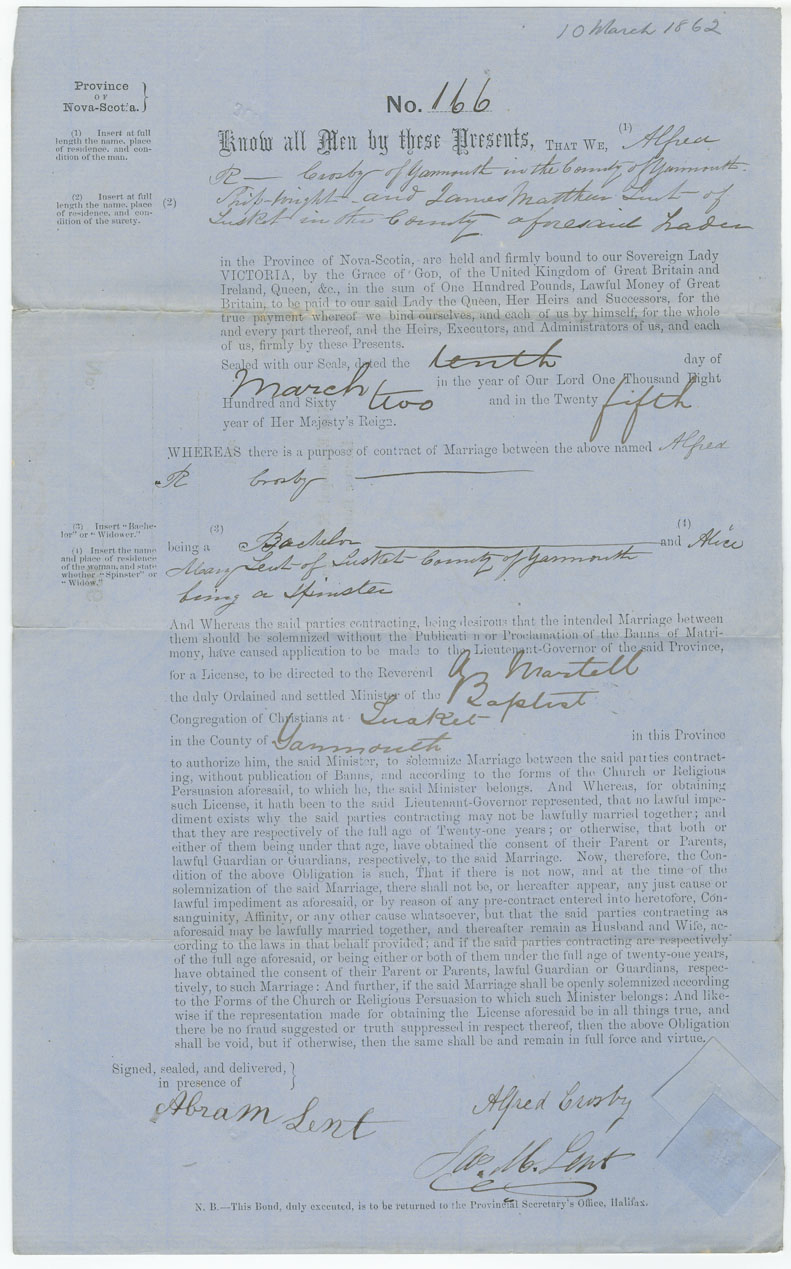 10 March 1862
Province
OF
Nova-Scotia.
No. 166
(1) Insert at full
length the name, place
of residence, and con-
dition of the man.
Know all Men by these Presents, THAT WE, (1) Alfred
R — Crosby of Yarmouth in the County of Yarmouth
(2) Insert at full
length the name, place
of residence, and con-
dition of the surety.
(2) Ship-wright and James Matthew Lent of
Tusket in the County aforesaid Trader
in the Province of Nova-Scotia, are held and firmly bound to our Sovereign Lady
VICTORIA, by the Grace of God, of the United Kingdom of Great Britain and
Ireland, Queen, &c., in the sum of One Hundred Pounds, Lawful Money of Great
Britain, to be paid to our said Lady the Queen, Her Heirs and Successors, for the
true payment whereof we bind ourselves, and each of us by himself, for the whole
and every part thereof, and the Heirs, Executors, and Administrators of us, and each
of us, firmly by these Presents.
Sealed with our Seals, dated the tenth day of
March in the year of Our Lord One Thousand Eight
Hundred and Sixty two and in the Twenty fifth
year of Her Majesty's Reign.
WHEREAS there is a purpose of contract of Marriage between the above named Alfred
R Crosby
(3) Insert "Bache-
lor" or "Widower."
(4) Insert the name
and place of residence
of the woman, and state
whether "Spinster" or
"Widow."
being a (3) Bachelor and (4) Alice
Mary Lent of Tusket County of Yarmouth
being a Spinster
And Whereas the said parties contracting, being desirous that the intended Marriage between
them should be solemnized without the Publication or Proclamation of the Banns of Matri-
mony, have caused application to be made to the Lieutenant-Governor of the said Province,
for a License, to be directed to the Reverend A Martell
the duly Ordained and settled Minister of the Baptist
Congregation of Christians at Tusket
in the County of Yarmouth in this Province
to authorize him, the said Minister, to solemnize Marriage between the said parties contract-
ing, without publication of Banns, and according to the forms of the Church or Religious
Persuasion aforesaid, to which he, the said Minister belongs. And Whereas, for obtaining
such License, it hath been to the said Lieutenant-Governor represented, that no lawful impe-
diment exists why the said parties contracting may not be lawfully married together; and
that they are respectively of the full age of Twenty-one years; or otherwise, that both or
either of them being under that age, have obtained the consent of their Parent or Parents,
lawful Guardian or Guardians, respectively, to the said Marriage. Now, therefore, the Con-
dition of the above Obligation is such, That if there is not now, and at the time of the
solemnization of the said Marriage, there shall not be, or hereafter appear, any just cause or
lawful impediment as aforesaid, or by reason of any pre-contract entered into heretofore, Con-
sanguinity, Affinity, or any other cause whatsoever, but that the said parties contracting as
aforesaid may be lawfully married together, and thereafter remain as Husband and Wife, ac-
cording to the laws in that behalf provided; and if the said parties contracting are respectively
of the full age aforesaid, or being either or both of them under the full age of twenty-one years,
have obtained the consent of their Parent or Parents, lawful Guardian or Guardians, respec-
tively, to such Marriage: And further, if the said Marriage shall be openly solemnized according
to the Forms of the Church or Religious Persuasion to which such Minister belongs: And like-
wise if the representation made for obtaining the License aforesaid be in all things true, and
there be no fraud suggested or truth suppressed in respect thereof, then the above Obligation
shall be void, but if otherwise, then the same shall be and remain in full force and virtue.
Signed, sealed, and delivered,
in presence of
Abram Lent
Alfred Crosby
Jas. M. Lent
N. B.—This Bond, duly executed, is to be returned to the Provincial Secretary's Office, Halifax.